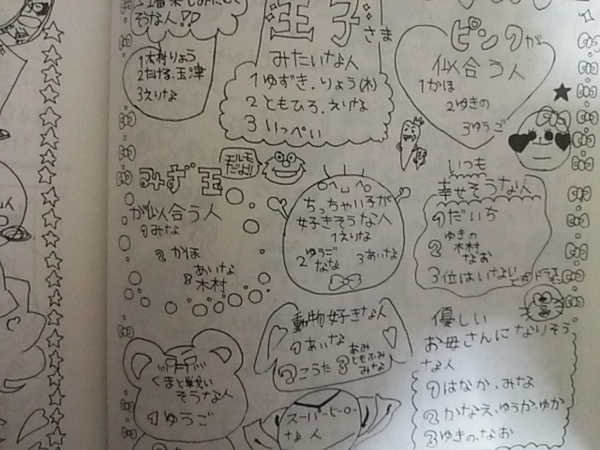 そうな人!?
1木村りょう
2たける、玉津
3えりな
王子さま
みたいな人
1ゆずき、りょう(木)
2ともひろ、えりな
3いっぺい
ピンクが
似合う人
1かほ
2ゆきの
3ゆうご
みず玉
が似合う人
1みな
2かほ
3あいな
木村
ちっちゃい子が
好きそうな人
1えりな
2ゆうご
なな
3あいな
いつも
幸せそうな人
1だいち
2ゆきの
木村
なお
3位はいないよ
動物好きな人
1あいな
2こうた
3あみ
ともふみ
みな
優しい
お母さんになりそう
な人
1はなか、みな
2かなえ、ゆうか、ゆか
3ゆきの、なお
くまと戦い
そうな人
1ゆうご
スーパーヒーロー
な人